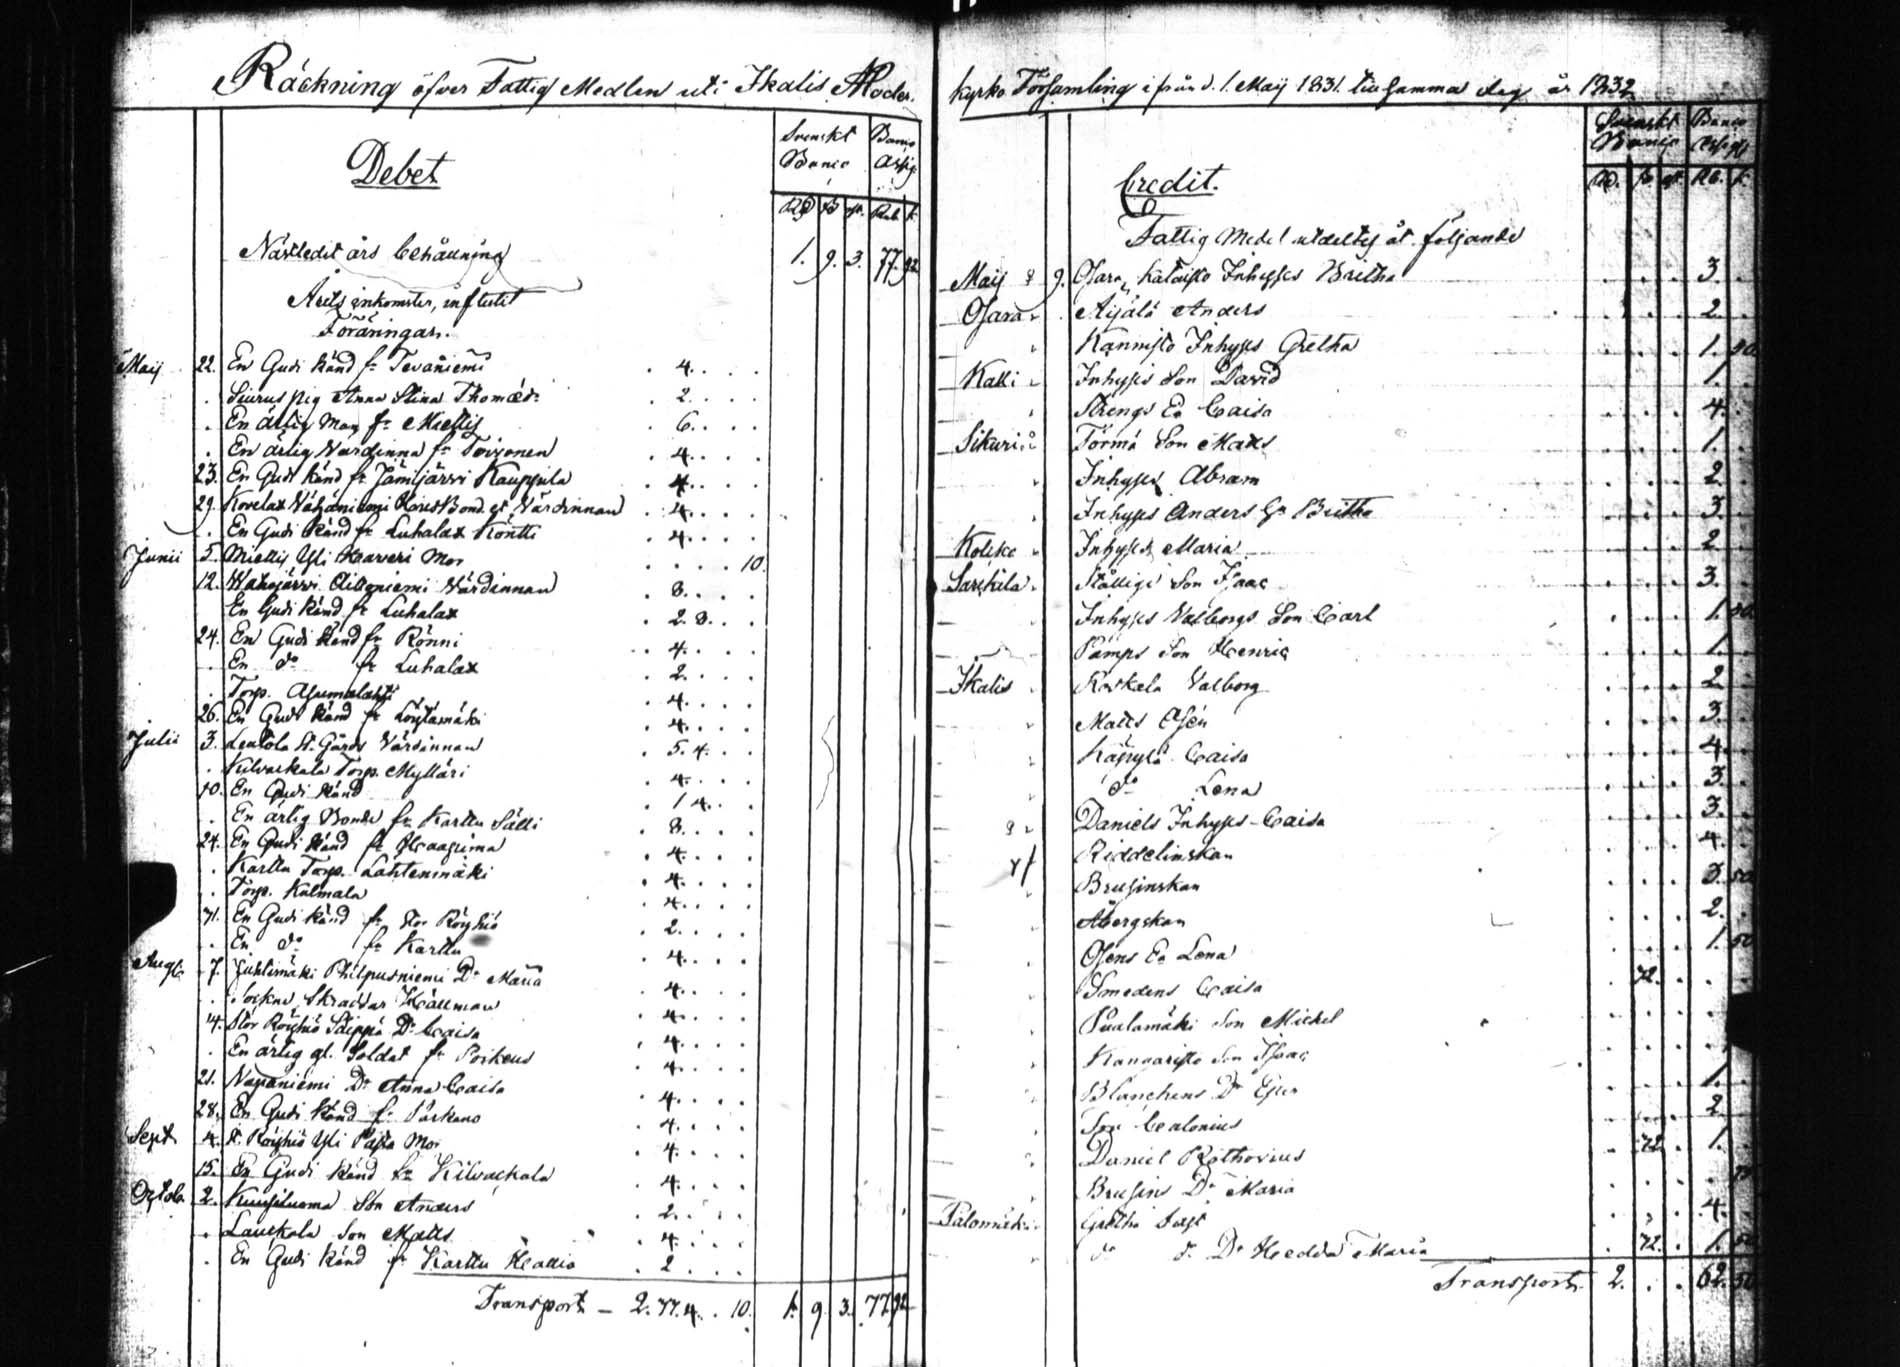 Räckning öfver Fattig Medlen uti Ikalis Moder.
Svenskt Banco
Banco Assig.
Debet
Rd ß rst. Rub. k.
Nästledit års behållning 1. 9. 3. 77. 92
Årets inkomster, influtit
Föräringar.
Maij 22. En Gudi känd fr Tevaniemi . 4. . . .
. Siurus pig Anna Stina Thomæd:r . 2. . . .
. En ärlig Man fr Miettis . 6. . . .
. En ärlig Värdinna fr Toivonen . 4. . . .
23. En Gudi känd fr Jämijärvi Kauppila . 4. . . .
29. Kovelax Vähäniemi Bond. et Värdinnan . 4. . . .
. En Gudi känd fr Luhalax Köntti . 4. . . .
Junii 5. Miettis Yli Kaareri Mor . . . . 10.
12. Värdinnan . 8. . . .
En Gudi känd fr Luhalax . 2. 8. . .
24. En Gudi känd fr Rönni . 4. . . .
. En do fr Luhalax . 2. . . .
. Torp. . 4. . . .
26. En Gudi känd fr Löytämäki . 4. . . .
Julii 3. Leutola St. Gårds Värdinnan . 5. 4. . .
. Kilvackala Torp. Mylläri . 4. . . .
10. En Gudi känd . 1 4. . .
. En ärlig Bonde fr Karttu Sälli . 8. . . .
24. En Gudi känd fr Haapima . 4. . . .
. Karttu Torp. Lähtenmäki . 4. . . .
. Torp. Kulmala . 4. . . .
31. En Gudi känd fr Stor Röyhiö . 2. . . .
. En do fr Karttu . 4. . . .
Aug. 7. Juhtimäki Philpusniemi Dr Maria . 4. . . .
. Sockne Skräddar Hällman . 4. . . .
14. Stor Röyhiö Seippä Dr Caisa . 4. . . .
. En ärlig gl. Soldat fr Poikeus . 4. . . .
21. Napaniemi Dr Anna Caisa . 4. . . .
28. En Gudi känd fr Parkano . 4. . . .
Sept. 4. St. Röyhiö Yli Mor . 4. . . .
15. En Gudi känd fr Kilvackala . 4. . . .
Octob. 2. Kuusiluoma Son Anders . 2. . . .
. Lauckala Son Matts . 4. . . .
. En Gudi känd fr Karttu Hallio . 2 . . .
Transport — 2. 77. 4. . 10. 1. 9. 3. 77. 92
kyrko Församling ifrån d. 1. Maij 1831. till samma dag år 1832
Svenskt Banco
Banco Assig
Credit.
Rd. ß rst. Rb. k.
Fattig Medel utdeltes åt följande
Maij 9. Osara, Inhyses Britha 3. .
Osara Äijälä Anders 2 .
Kannisto Inhyses Gretha 1. 50
Kalli Inhyses Son David 1. .
Strengs Ea Caisa 4. .
Sikuri Törmä Son Matts 1. .
Inhyses Abram 2 .
Inhyses Anders Ea Britha 3. .
Inhyses Maria 2 .
Sarkila Son Isaac 3. .
Inhyses Valborgs Son Carl 1. 50
Pamps Son Henric 1. .
Ikalis Koskela Valborg 2 .
Matts Osén 3. .
Käpylä Caisa 4. .
do Lena 3. .
Daniels Inhyses Caisa 3. .
Riddelinskan 4. .
Brusinskan 3. 50
Åbergskan 2. .
Osens Ea Lena 1. 50
Smedens Caisa 72. . . .
Son Michel
Kangaristo Son Isaac 1
Blanckens Dr 1. .
Son Calonius 2 .
Daniel Rothovius 72 . 1. .
Brusins Dr Maria
Palomäki Gretha 4. .
do d. Dr Hedda Maria 72. . 1. 50
Transport. 2. . . 62. 50